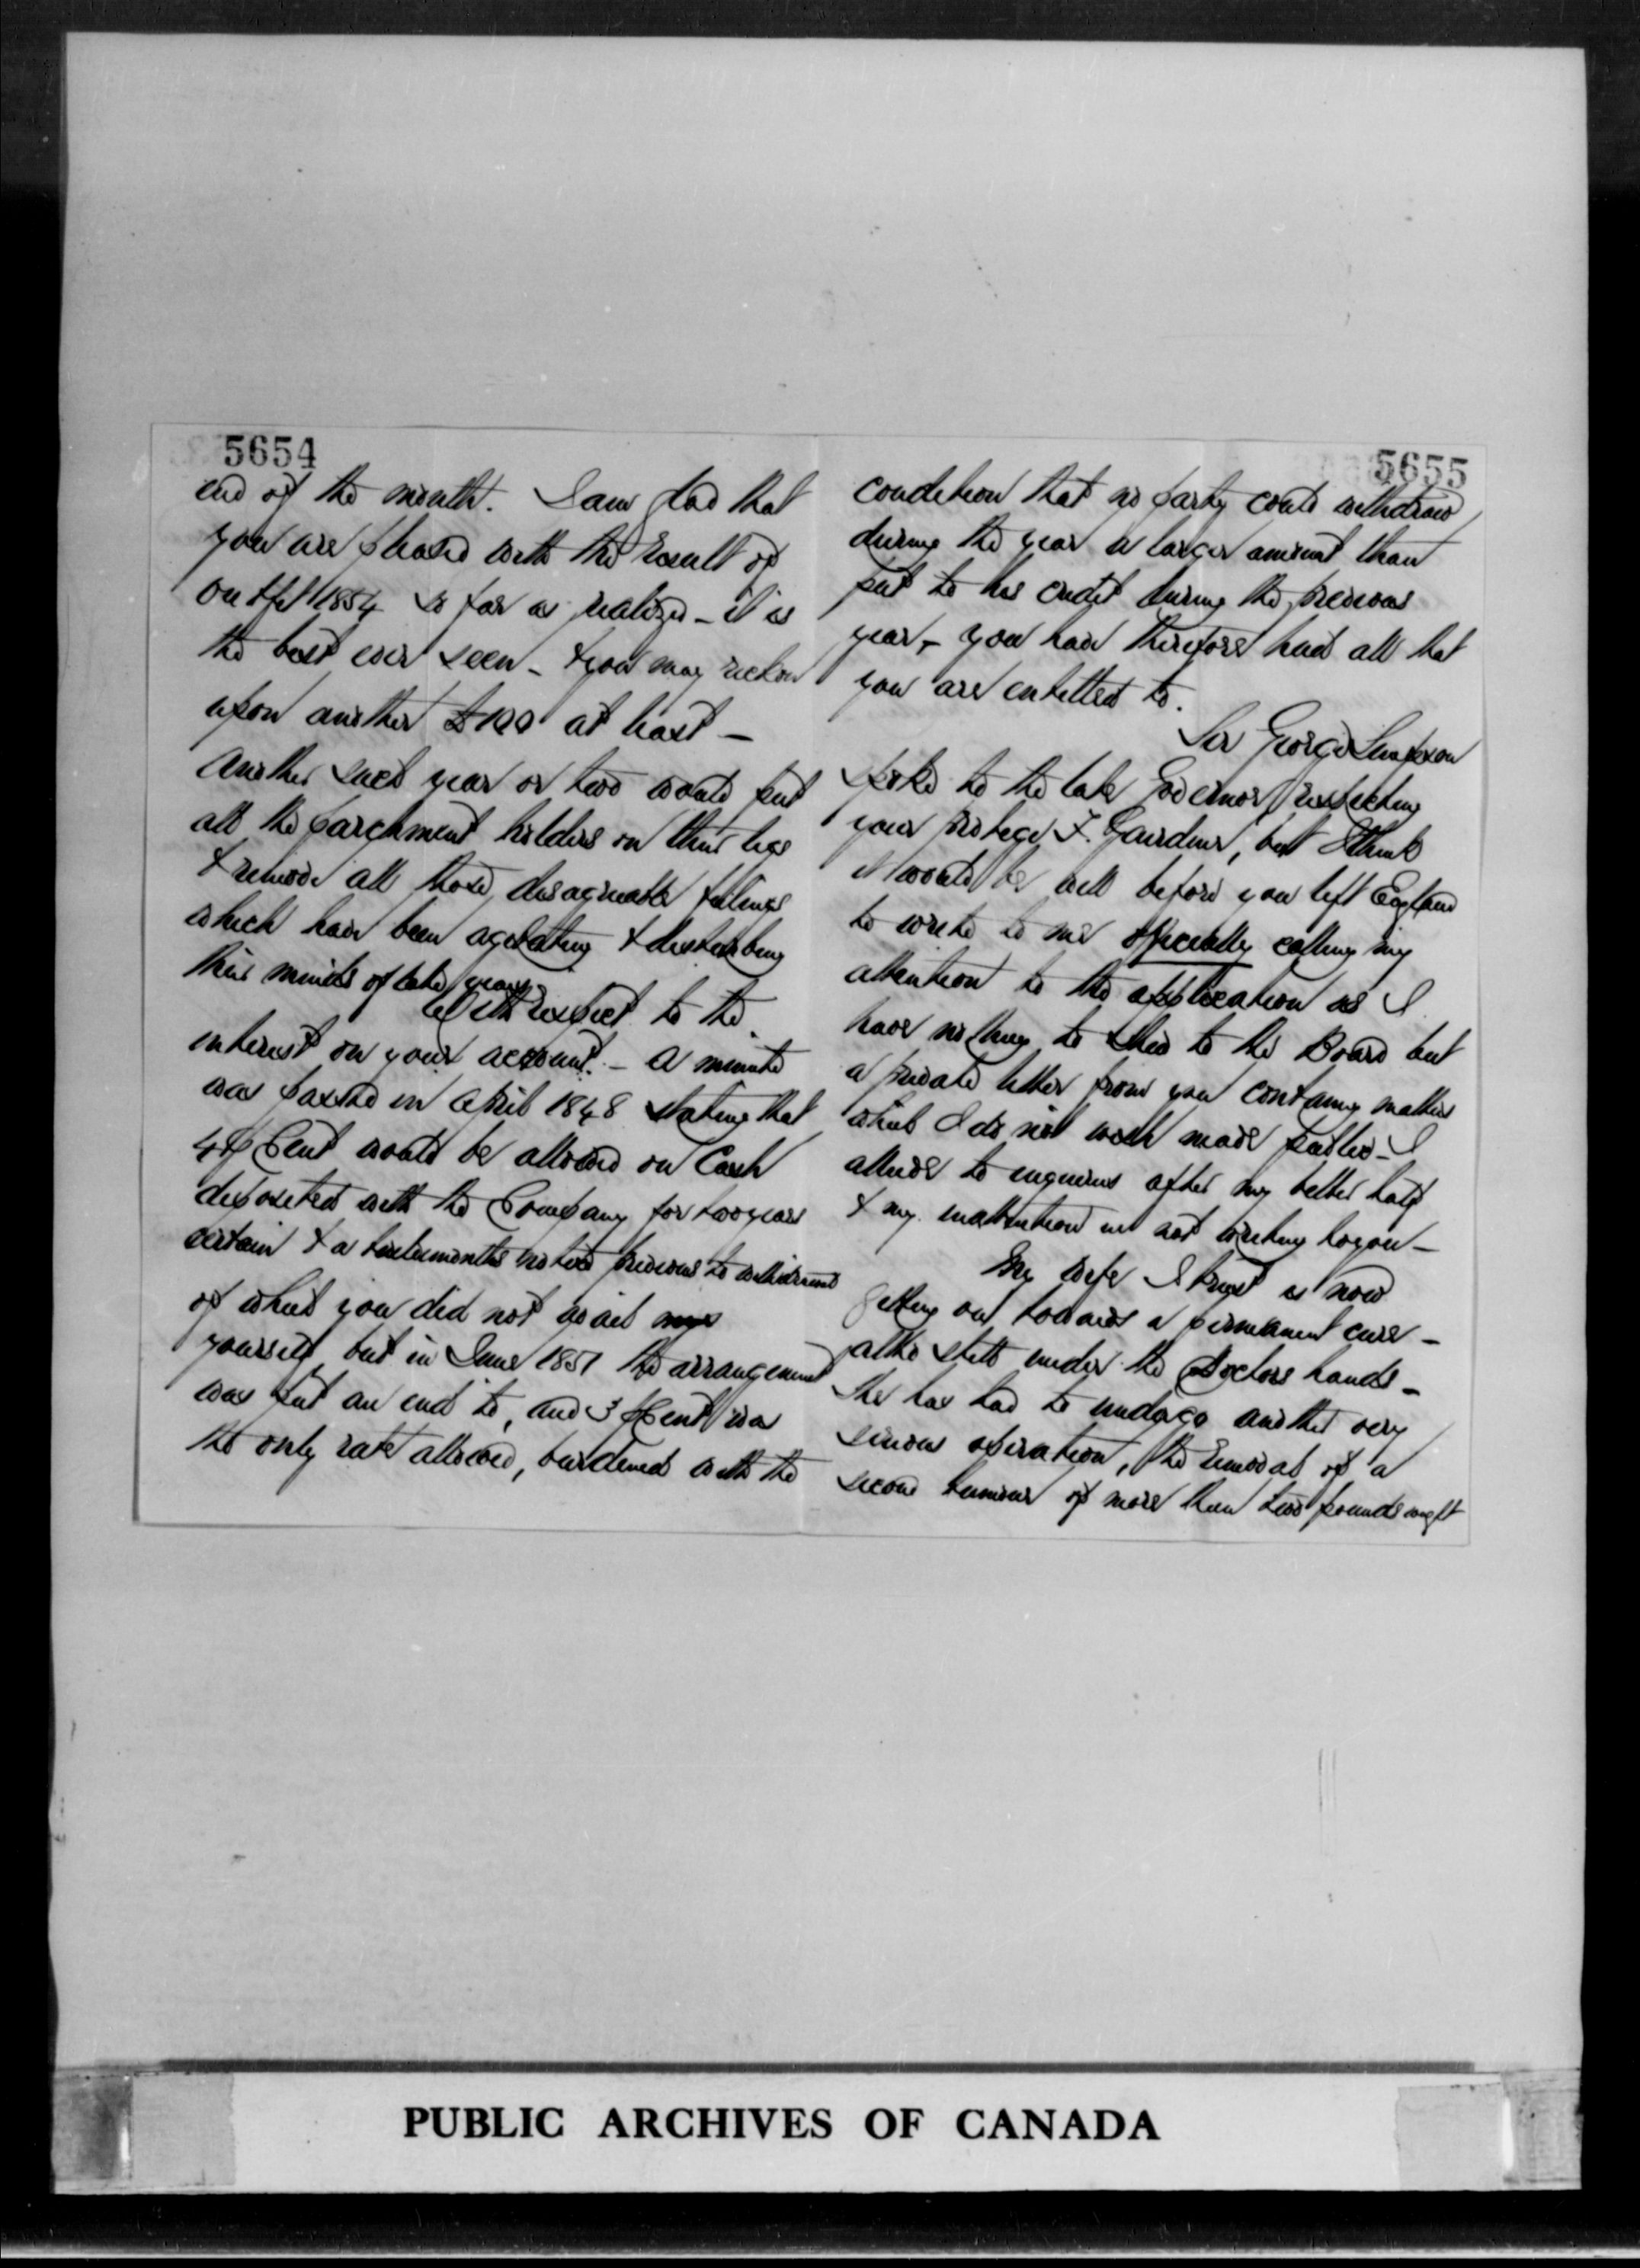 5654
end of the month. I am glad that
you are pleased with the result of
outfit 1854 so far as realized - it is
the best ever seen - & you may reckon
upon another £100 at least -
Another such year or two would put
all the parchment holders on their legs
& remove all those disagreeable feelings
which have been agitating & disturbing
their minds of late years.
With respect to the
interest on your account. - a minute
was passed in April 1848 stating that
4 ⅌ Cent would be allowed on Cash
deposited with the Company for two years
certain & a twelvemonths notice previous to withdrawal
of which you did not avail
yourself, but in June 1851 the arrangement
was put an end to, and 3 ⅌ Cent was
the only rate allowed, burdened with the
5655
condition that no party could withdraw
during the year a larger amount than
put to his credit during the previous
year, - you have therefore had all that
you are entitled to.
Sir George Simpson
spoke to the late Governor respecting
your protege F. Gairdner, but I think
it would be well before you left England
to write to me officially calling my
attention to the application as I
have nothing to shew to the Board but
a private letter from you containing matters
which I do not wish made public - I
allude to enquiries after my better half
& my inattention in not writing to you -
My wife I trust is now
getting on towards a permanent cure -
altho still under the Doctors hands -
She has had to undergo another very
serious operation, the removal of a
second tumour of more than two pounds weight
PUBLIC ARCHIVES OF CANADA